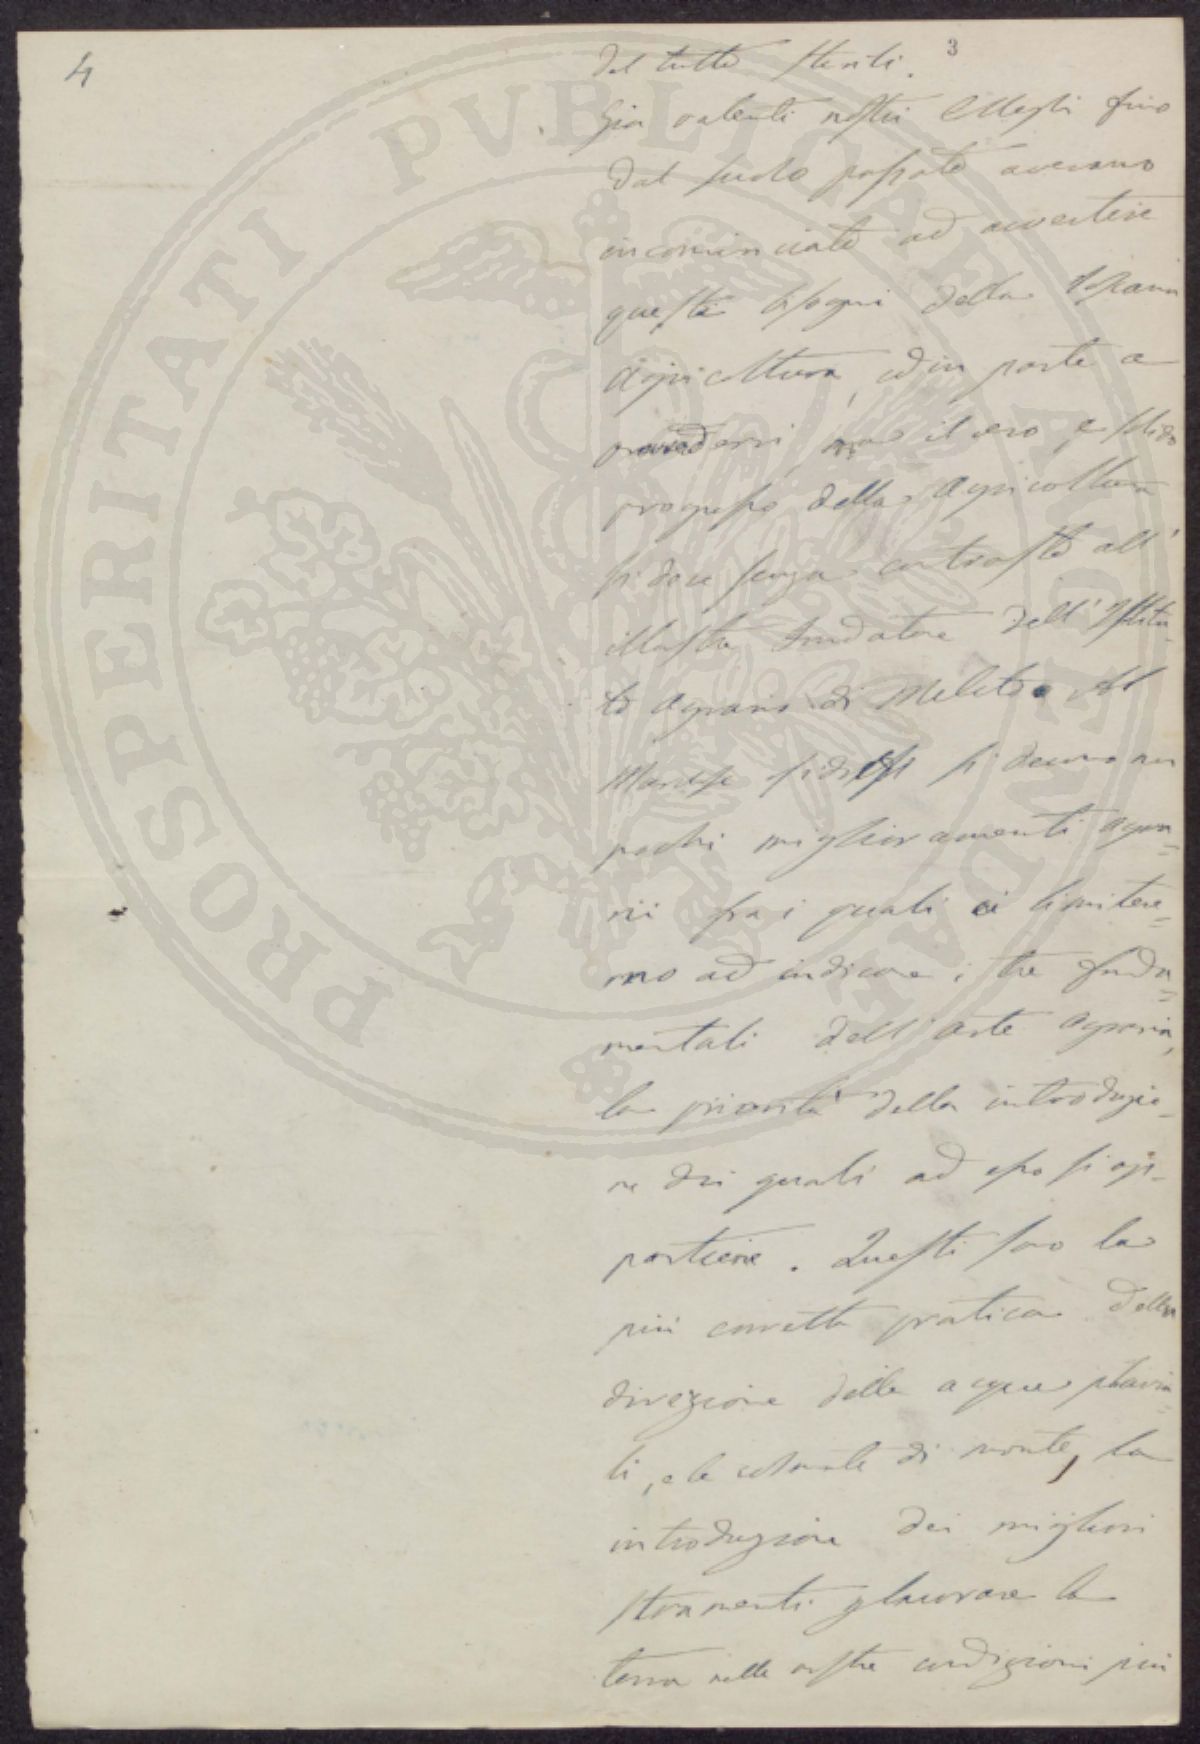 4
3
del tutto sterili.
Già valenti nostri Colleghi fino
dal secolo passato avevano
incominciato ad avvertire
questi bisogni della Toscana
Agricoltura, ed in parte a
provvedervi, ma il vero, e solido
progresso della Agricoltura
si deve senza contrasto all'
illustre fondatore dell'Istitu-
to Agrario di Meleto. Al
Marchese Ridolfi si devono non
pochi miglioramenti agra=
rii fra i quali ci limitere=
mo ad indicare i tre fonda=
mentali dell'arte Agraria,
la priorità della introduzio-
ne dei quali ad esso si ap-
partiene. Questi sono la
più corretta pratica della
direzione delle acque pluvia=
li, e le colmate di monte, la
introduzione dei migliori
strumenti p lavorare la
terra nelle nostre condizioni più
PROSPERITATI PVBLICAE AVGENDAE